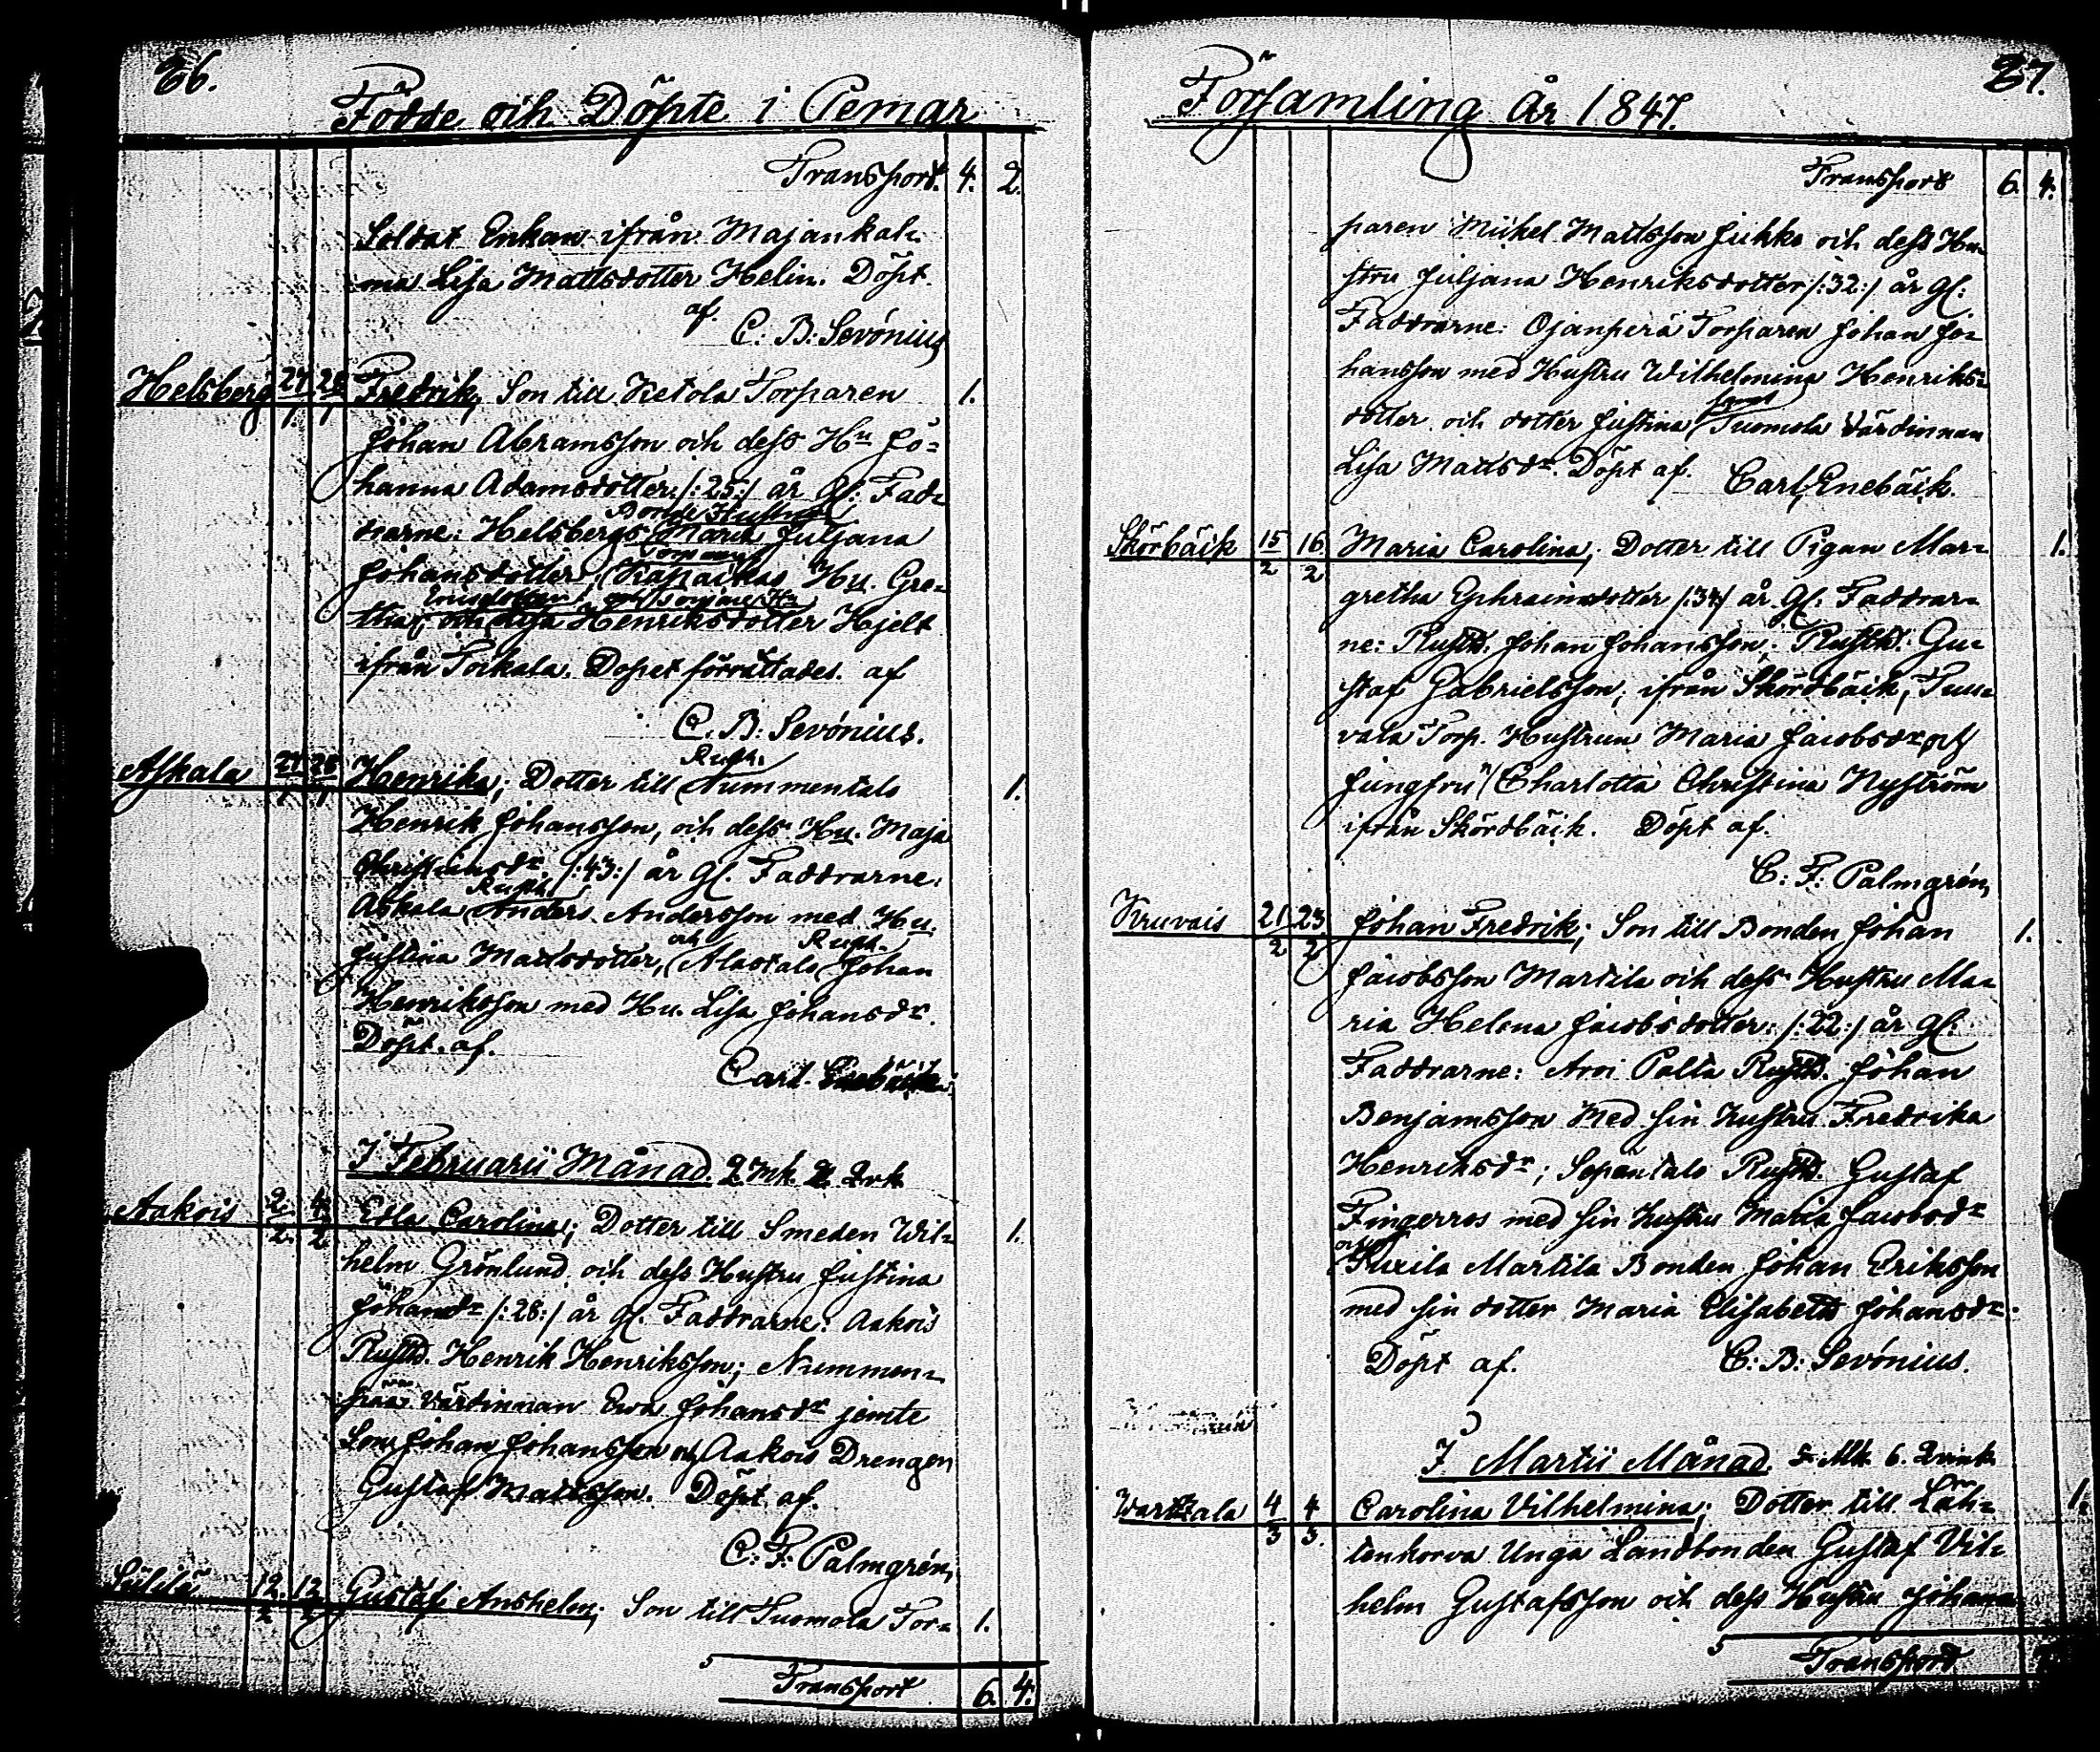 86.
Födde och Döpte i Pemar
Transport. 4. 2.
Soldat Enkan ifrån Majankal-
ma Lisa Mattsdotter Helin. Döpt.
af. C. B. Sevónius
Helsberg 27/1 28/1 Fredrik, Son till Ketola Torparen 1.
Johan Abramsson och dess Hu Jo-
hanna Adamsdotter /:25:/ år gl: Fad-
Bonde Hustrun
drarne: Helsbergs Maria Juljana
Johansdotter; Kapaikas Hu. Gre-
tha, och Lisa Henriksdotter Hjelt
ifrån Tockala. Dopet förrättades af
C. B. Sevónius.
Rusth.
Askala 27/1 28/1 Henrika; Dotter till Nummentalo 1.
Henrik Johansson, och dess Hu. Maja
Christiansdr /:43:/ år gl. Faddrarne:
Rusth.
Askala Anders Andersson med Hu.
och Rusth.
Justina Mattsdotter, Alastalo Johan
Henriksson med Hu. Lisa Johansdr.
Döpt. af.
Carl Enebäck
I Februarii Månad. 2 Mk. 2. Qvk
Aakois 2/2 4/2 Edla Carolina; Dotter till Smeden Wil- 1.
helm Grönlund och dess Hustru Justina
Johansdr /:28:/ år gl. Faddrarne: Aakois
Rusth. Henrik Henriksson; Nummen-
pää Värdinnan Ewa Johansdr jemte
Son Johan Johansson och Aakois Drengen
Gustaf Mattsson. Döpt af.
C. F. Palmgrén,
12/2 13/2 Gustaf Anshelm; Son till Tuomola Tor- 1.
Transport 6. 4.
87.
Församling År 1847.
Transport 6. 4.
paren Mickel Mattsson Juhko och dess Hu-
stru Juljana Henriksdotter /:32:/ år gl:
Faddrarne: Ojanperä Torparen Johan Jo-
hansson med Hustru Wilhelmina Henriks-
samt
dotter och dotter Justina Tuomola Värdinnan
Lisa Mattsdr. Döpt af. Carl Enebäck.
Skörbäck 15/2 16/2 Maria Carolina; Dotter till Pigan Mar- 1.
gretha Ephraimsdotter /:34/ år gl. Faddrar-
ne: Rusth. Johan Johansson; Rusth. Gu-
staf Gabrielsson, ifrån Skördbäck, Tuu-
vala Torp. Hustrun Maria Jacobsdr och
Jungfrun Charlotta Christina Nyström
ifrån Skördbäck. Döpt af.
C. F. Palmgrén,
Kruvais 21/2 23/2 Johan Fredrik; Son till Bonden Johan 1.
Jacobsson Martila och dess Hustru Ma-
ria Helena Jacobsdotter /:22:/ år gl:
Faddrarne: Arvi Palta Rusth. Johan
Benjamsson Med sin hustru Fredrika
Henriksdr; Sepäntalo Rusth. Gustaf
Fingerros med sin hustru Maria Jacobsdr
och
Martila Bonden Johan Eriksson
med sin dotter Maria Elisabeth Johansdr
Döpt af. C. B. Sevónius.
I Martii Månad. 5 Mk. 6. Qvink.
4/3 4/3 Carolina Vilhelmina; Dotter till Läh- 1.
tenkorva Unga Landbonden Gustaf Vil-
helm Gustafsson och dess Hustru Johana
Transport